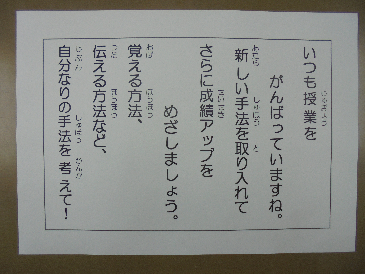 いつも授業を
がんばっていますね。
新しい手法を取り入れて
さらに成績アップを
めざしましょう。
覚える方法、
伝える方法など、
自分なりの手法を考えて！